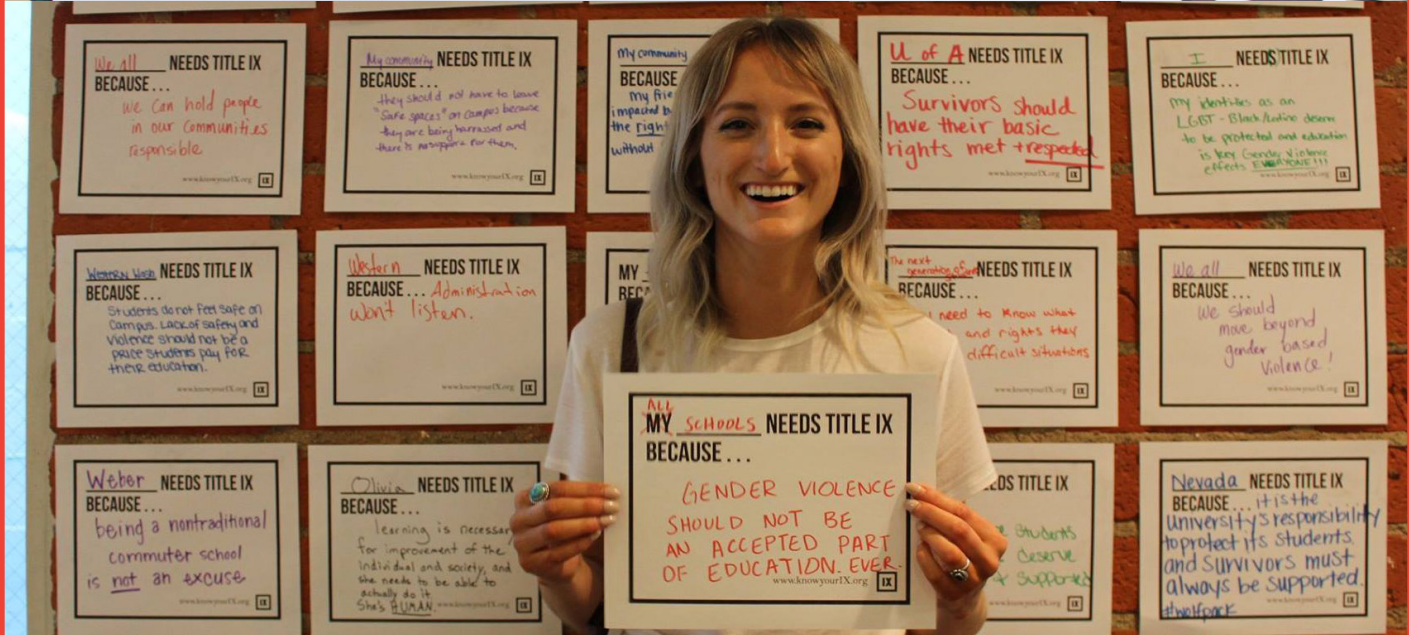 We all NEEDS TITLE IX
BECAUSE...
we can hold people
in our communities
responsible
www.knowyourIX.org IX
My community NEEDS TITLE IX
BECAUSE...
they should not have to leave
"safe spaces" on campus because
they are being harrassed and
there is no support for them.
www.knowyourIX.org IX
My community
BECAUSE
my frie
impacted b
the right
without
U of A NEEDS TITLE IX
BECAUSE...
Survivors should
have their basic
rights met + respected
www.knowyourIX.org IX
I NEEDS TITLE IX
BECAUSE...
my identities as an
LGBT - Black/Latino deserve
to be protected and education
is key Gender Violence
effects EVERYONE!!!
www.knowyourIX.org IX
Western Wash NEEDS TITLE IX
BECAUSE...
Students do not feel safe on
campus. Lack of safety and
violence should not be a
price students pay for
their education.
www.knowyourIX.org IX
Western NEEDS TITLE IX
BECAUSE... Administration
won't listen.
www.knowyourIX.org IX
MY
BECA
The next
generation of NEEDS TITLE IX
BECAUSE...
need to know what
and rights they
difficult situations
www.knowyourIX.org IX
We all NEEDS TITLE IX
BECAUSE...
We should
move beyond
gender based
violence!
www.knowyourIX.org IX
ALL
MY SCHOOLS NEEDS TITLE IX
BECAUSE...
GENDER VIOLENCE
SHOULD NOT BE
AN ACCEPTED PART
OF EDUCATION. EVER.
www.knowyourIX.org IX
Weber NEEDS TITLE IX
BECAUSE...
being a nontraditional
commuter school
is not an excuse
www.knowyourIX.org IX
Olivia NEEDS TITLE IX
BECAUSE...
learning is necessary
for improvement of the
individual and society, and
she needs to be able to
actually do it
She's HUMAN.
www.knowyourIX.org IX
EDS TITLE IX
students
deserve
supported
www.knowyourIX.org IX
Nevada NEEDS TITLE IX
BECAUSE... it is the
university's responsibility
to protect its students,
and survivors must
always be supported.
#wolfpack
www.knowyourIX.org IX